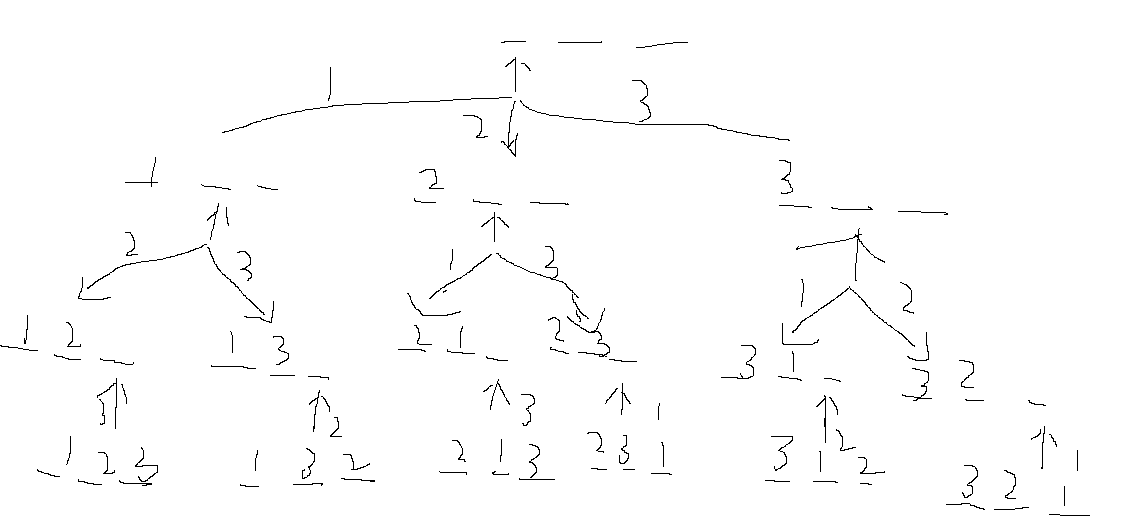 _ _ _
1 3
2
1 _ _ 2 _ _ 3 _ _
2 3 1 3 1 2
1 2 _ 1 3 _ 2 1 _ 2 3 _ 3 1 _ 3 2 _
3 2 3 1 2 1
1 2 3 1 3 2 2 1 3 2 3 1 3 1 2 3 2 1